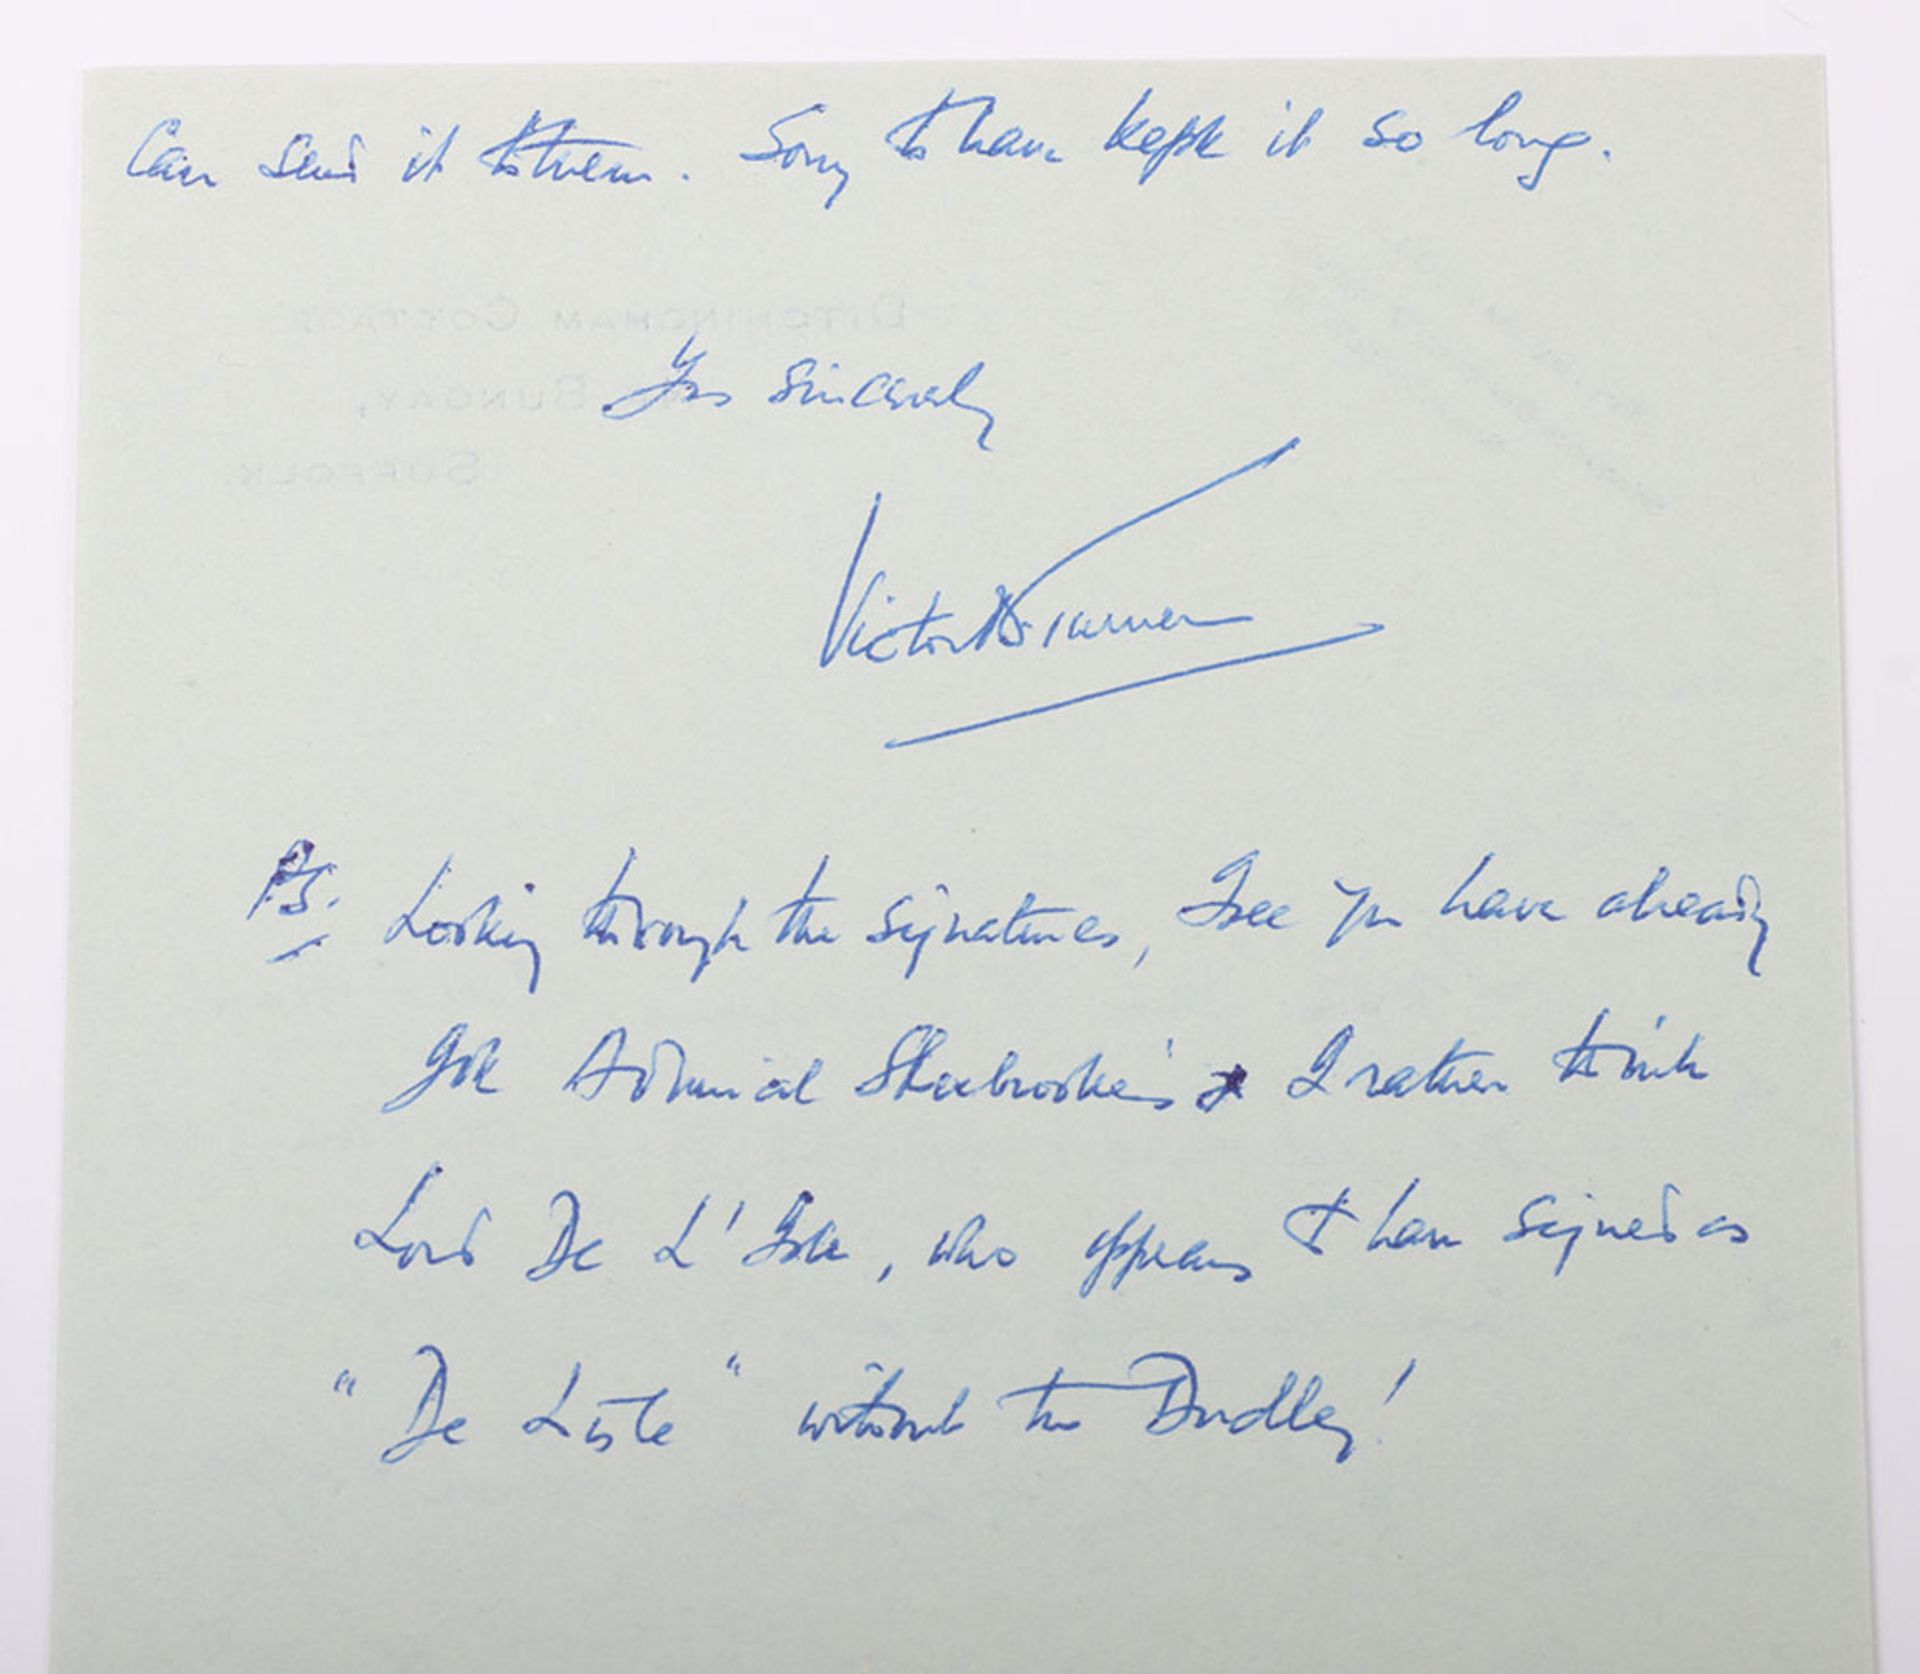 Can send it to them. Sorry to have kept it so long.
DITCHINGHAM COTTAGE
BUNGAY,
SUFFOLK
Yrs sincerely
Victor Turner
P.S. Looking through the signatures, I see you have already
got Admiral Sherbrooke's & I rather think
Lord De L'Isle, who appears to have signed as
"De Lisle" without the Dudley!